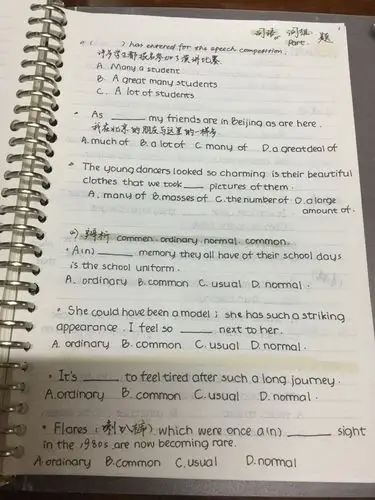 词语 词组 题
or Part.
( ) has entered for the speech competition.
许多学生都报名参加了演讲比赛
A. Many a student
B. A great many students
C. A lot of students
As ____ my friends are in Beijing as are here.
我在北京的朋友与这里的一样多
A. much of B. a lot of C. many of D. a great deal of
The young dancers looked so charming is their beautiful
clothes that we took ____ pictures of them.
A. many of B. masses of C. the number of D. a large
amount of.
辨析 commen. ordinary. normal. common.
A(n) ____ memory they all have of their school days
is the school uniform.
A. ordinary B. common C. usual D. normal.
She could have been a model; she has such a striking
appearance. I feel so ____ next to her.
A. ordinary B. common C. usual D. normal.
It's ____ to feel tired after such a long journey.
A. ordinary B. common C. usual D. normal.
Flares (喇叭裤) which were once a(n) ____ sight
in the 1980s are now becoming rare.
A. ordinary B. common C. usual D. normal